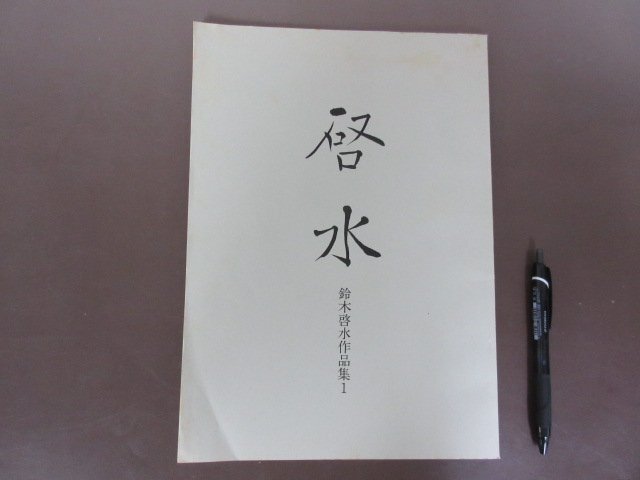 啓水
鈴木啓水作品集1